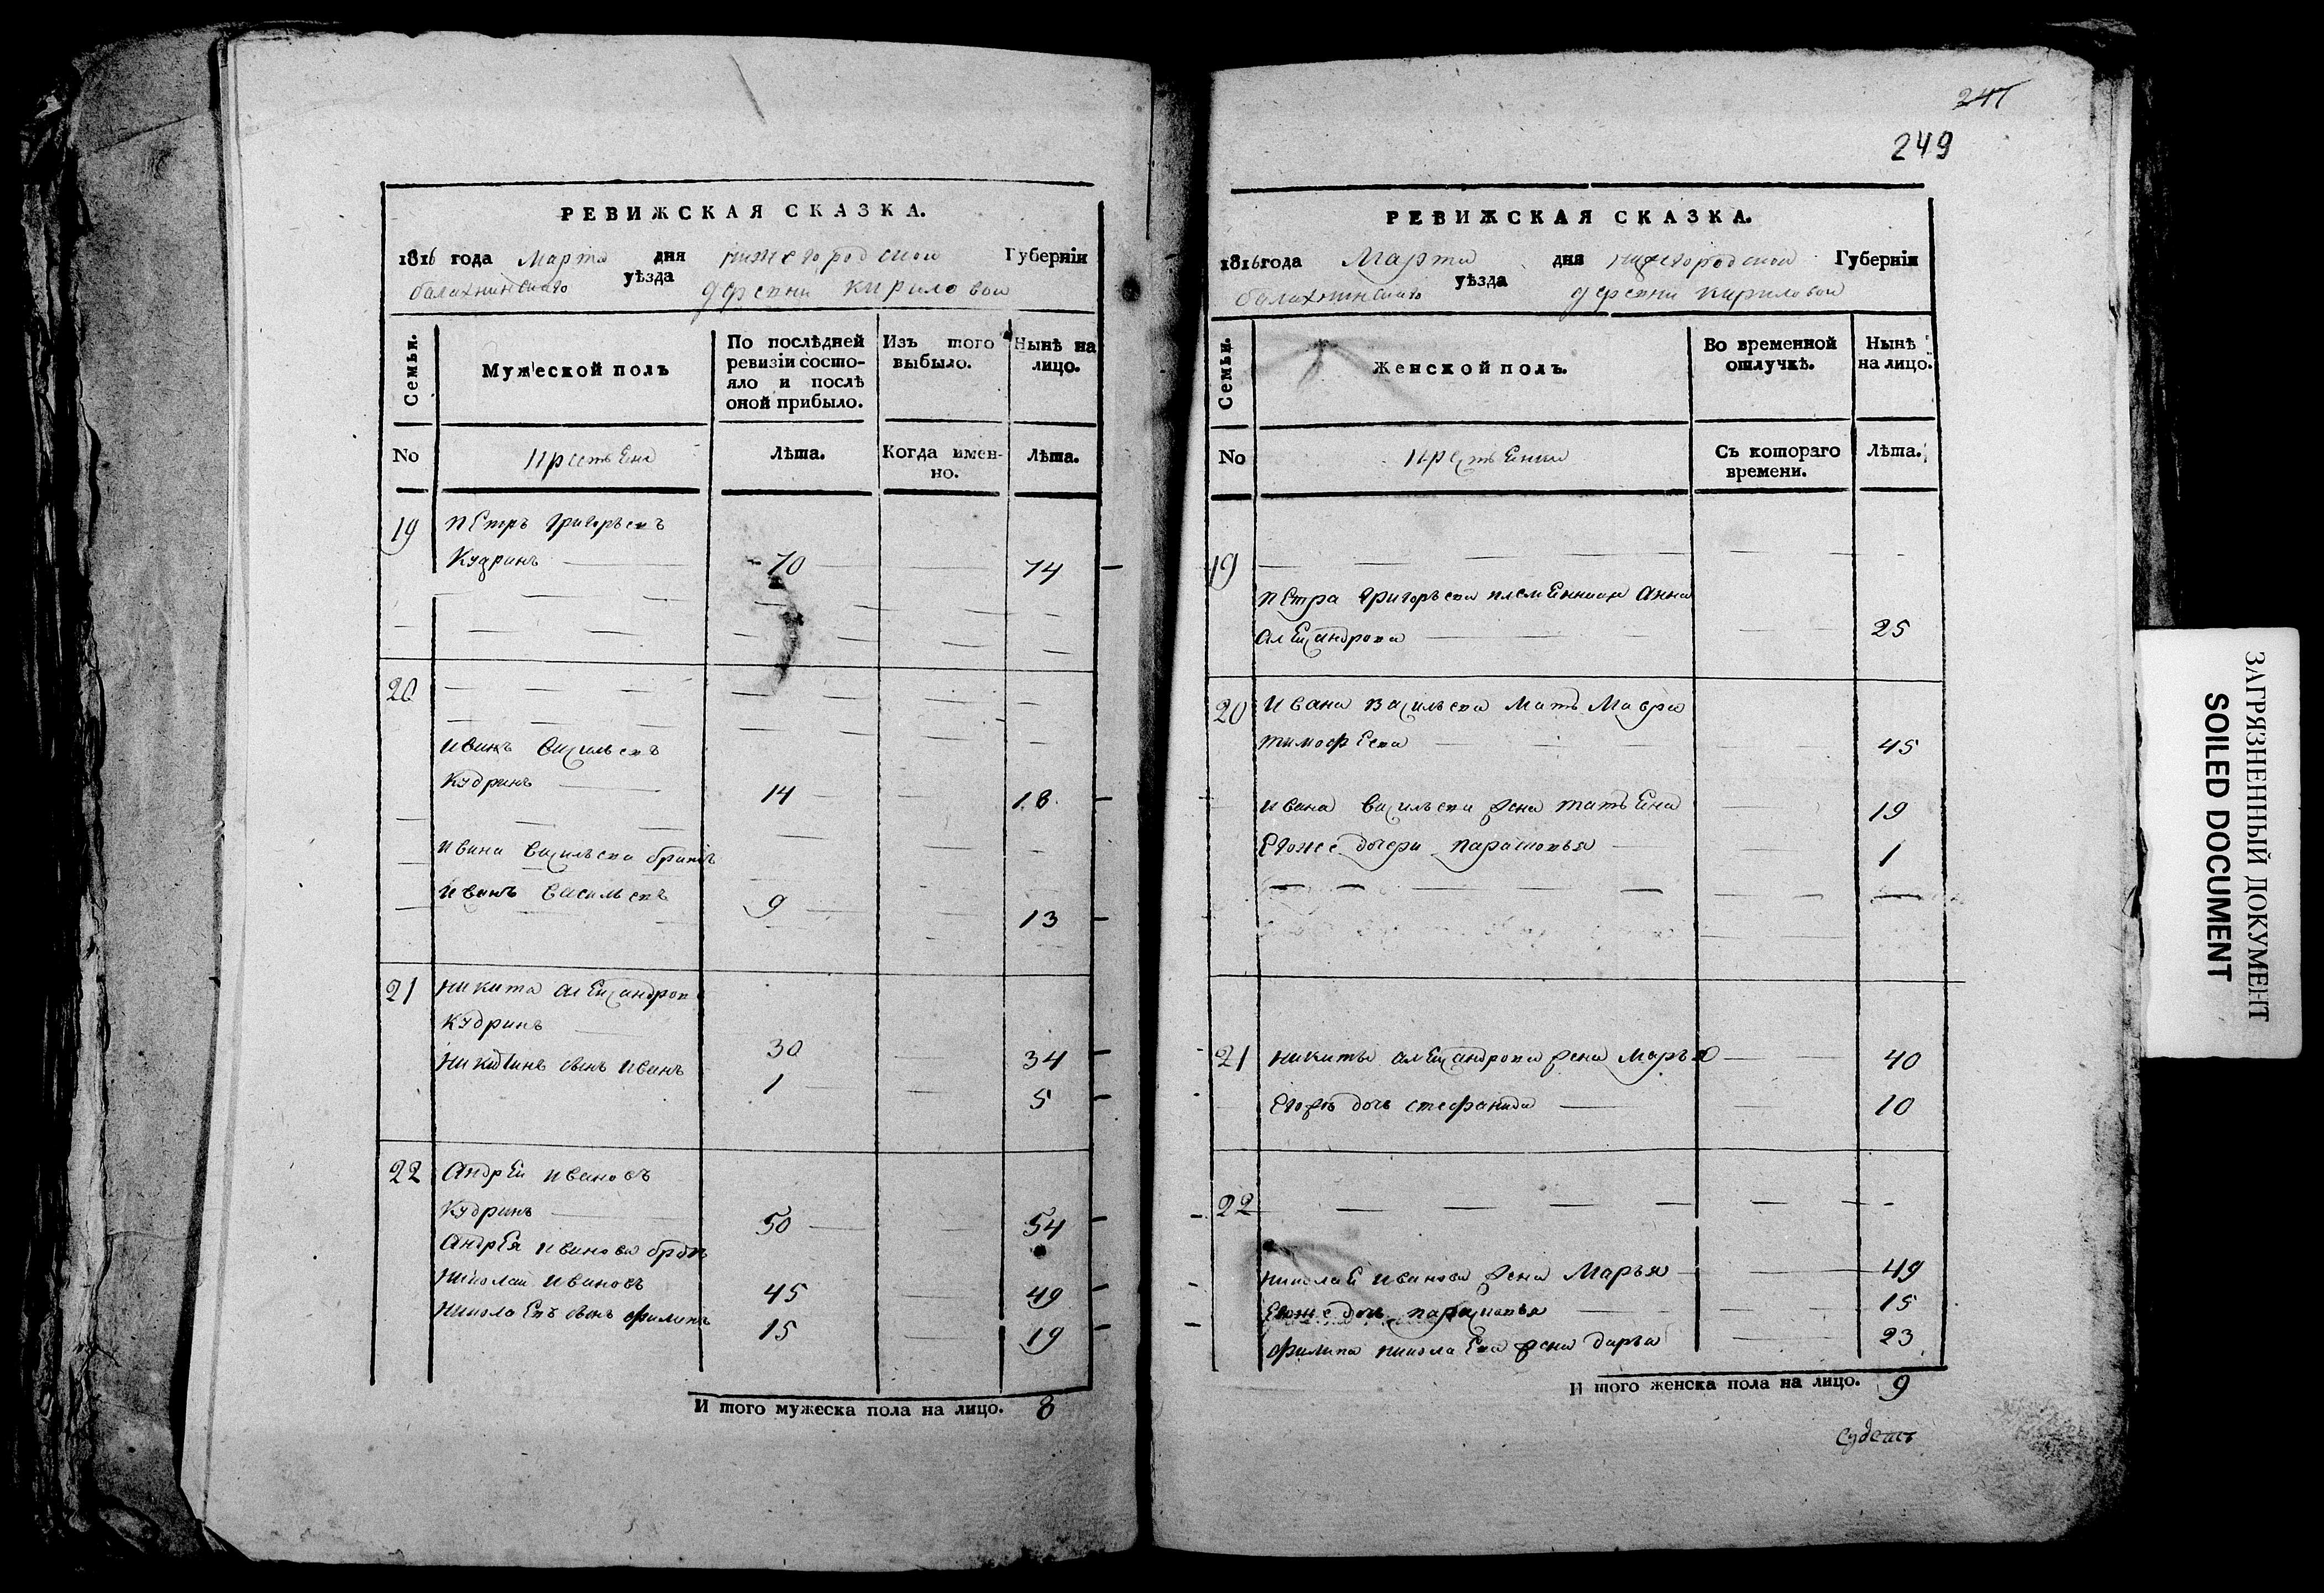 РЕВИЖСКАЯ СКАЗКА.
1816 года Марта дня нижегородской Губерніи
балахнинскаго уѣзда деревни кириловой
Семьи.
Мужеской полъ
По послѣдней ревизіи состо-
яло и послѣ
оной прибыло.
Изъ того
выбыло.
Нынѣ на
лицо.
No
Лѣта.
Когда имен-
но.
Лѣта.
19 пЕтръ григорьевъ
Кудринъ 70 74
20
иванъ васильевъ
Кудринъ 14 18
ивана васильева братъ
иванъ васильевъ 9 13
21 никита алеѯандровъ
Кудринъ 30 34
никитинъ сынъ иванъ 1 5
22 АндрЕй ивановъ
Кудринъ 50 54
АндрЕя иванова братъ
николай ивановъ 45 49
николаЕвъ сынъ филипъ 15 19
И того мужеска пола на лицо. 8
247
249
РЕВИЖСКАЯ СКАЗКА.
1816 года Марта дня нижегородской Губерніи
балахнинскаго уѣзда деревни кириловой
Семьи.
Женской полъ.
Во временной
отлучкѣ.
Нынѣ
на лицо.
No
Съ котораго
времени.
Лѣта.
19
пЕтра григорьева племЕнница Анна
алЕѯандрова 25
20 ивана васильева мать Мавра
тимофЕева 45
ивана васильева жена татьЕна 19
Егоже дочери парасковья 1
21 никиты алеѯандрова жена Марья 40
Егожъ дочь стефанида 10
22
николаЕ иванова жена Марья 49
Егоже дочь парасковья 15
филипа николаЕва жена дарья 23
И того женска пола на лицо. 9
ЗАГРЯЗНЕННЫЙ ДОКУМЕНТ
SOILED DOCUMENT